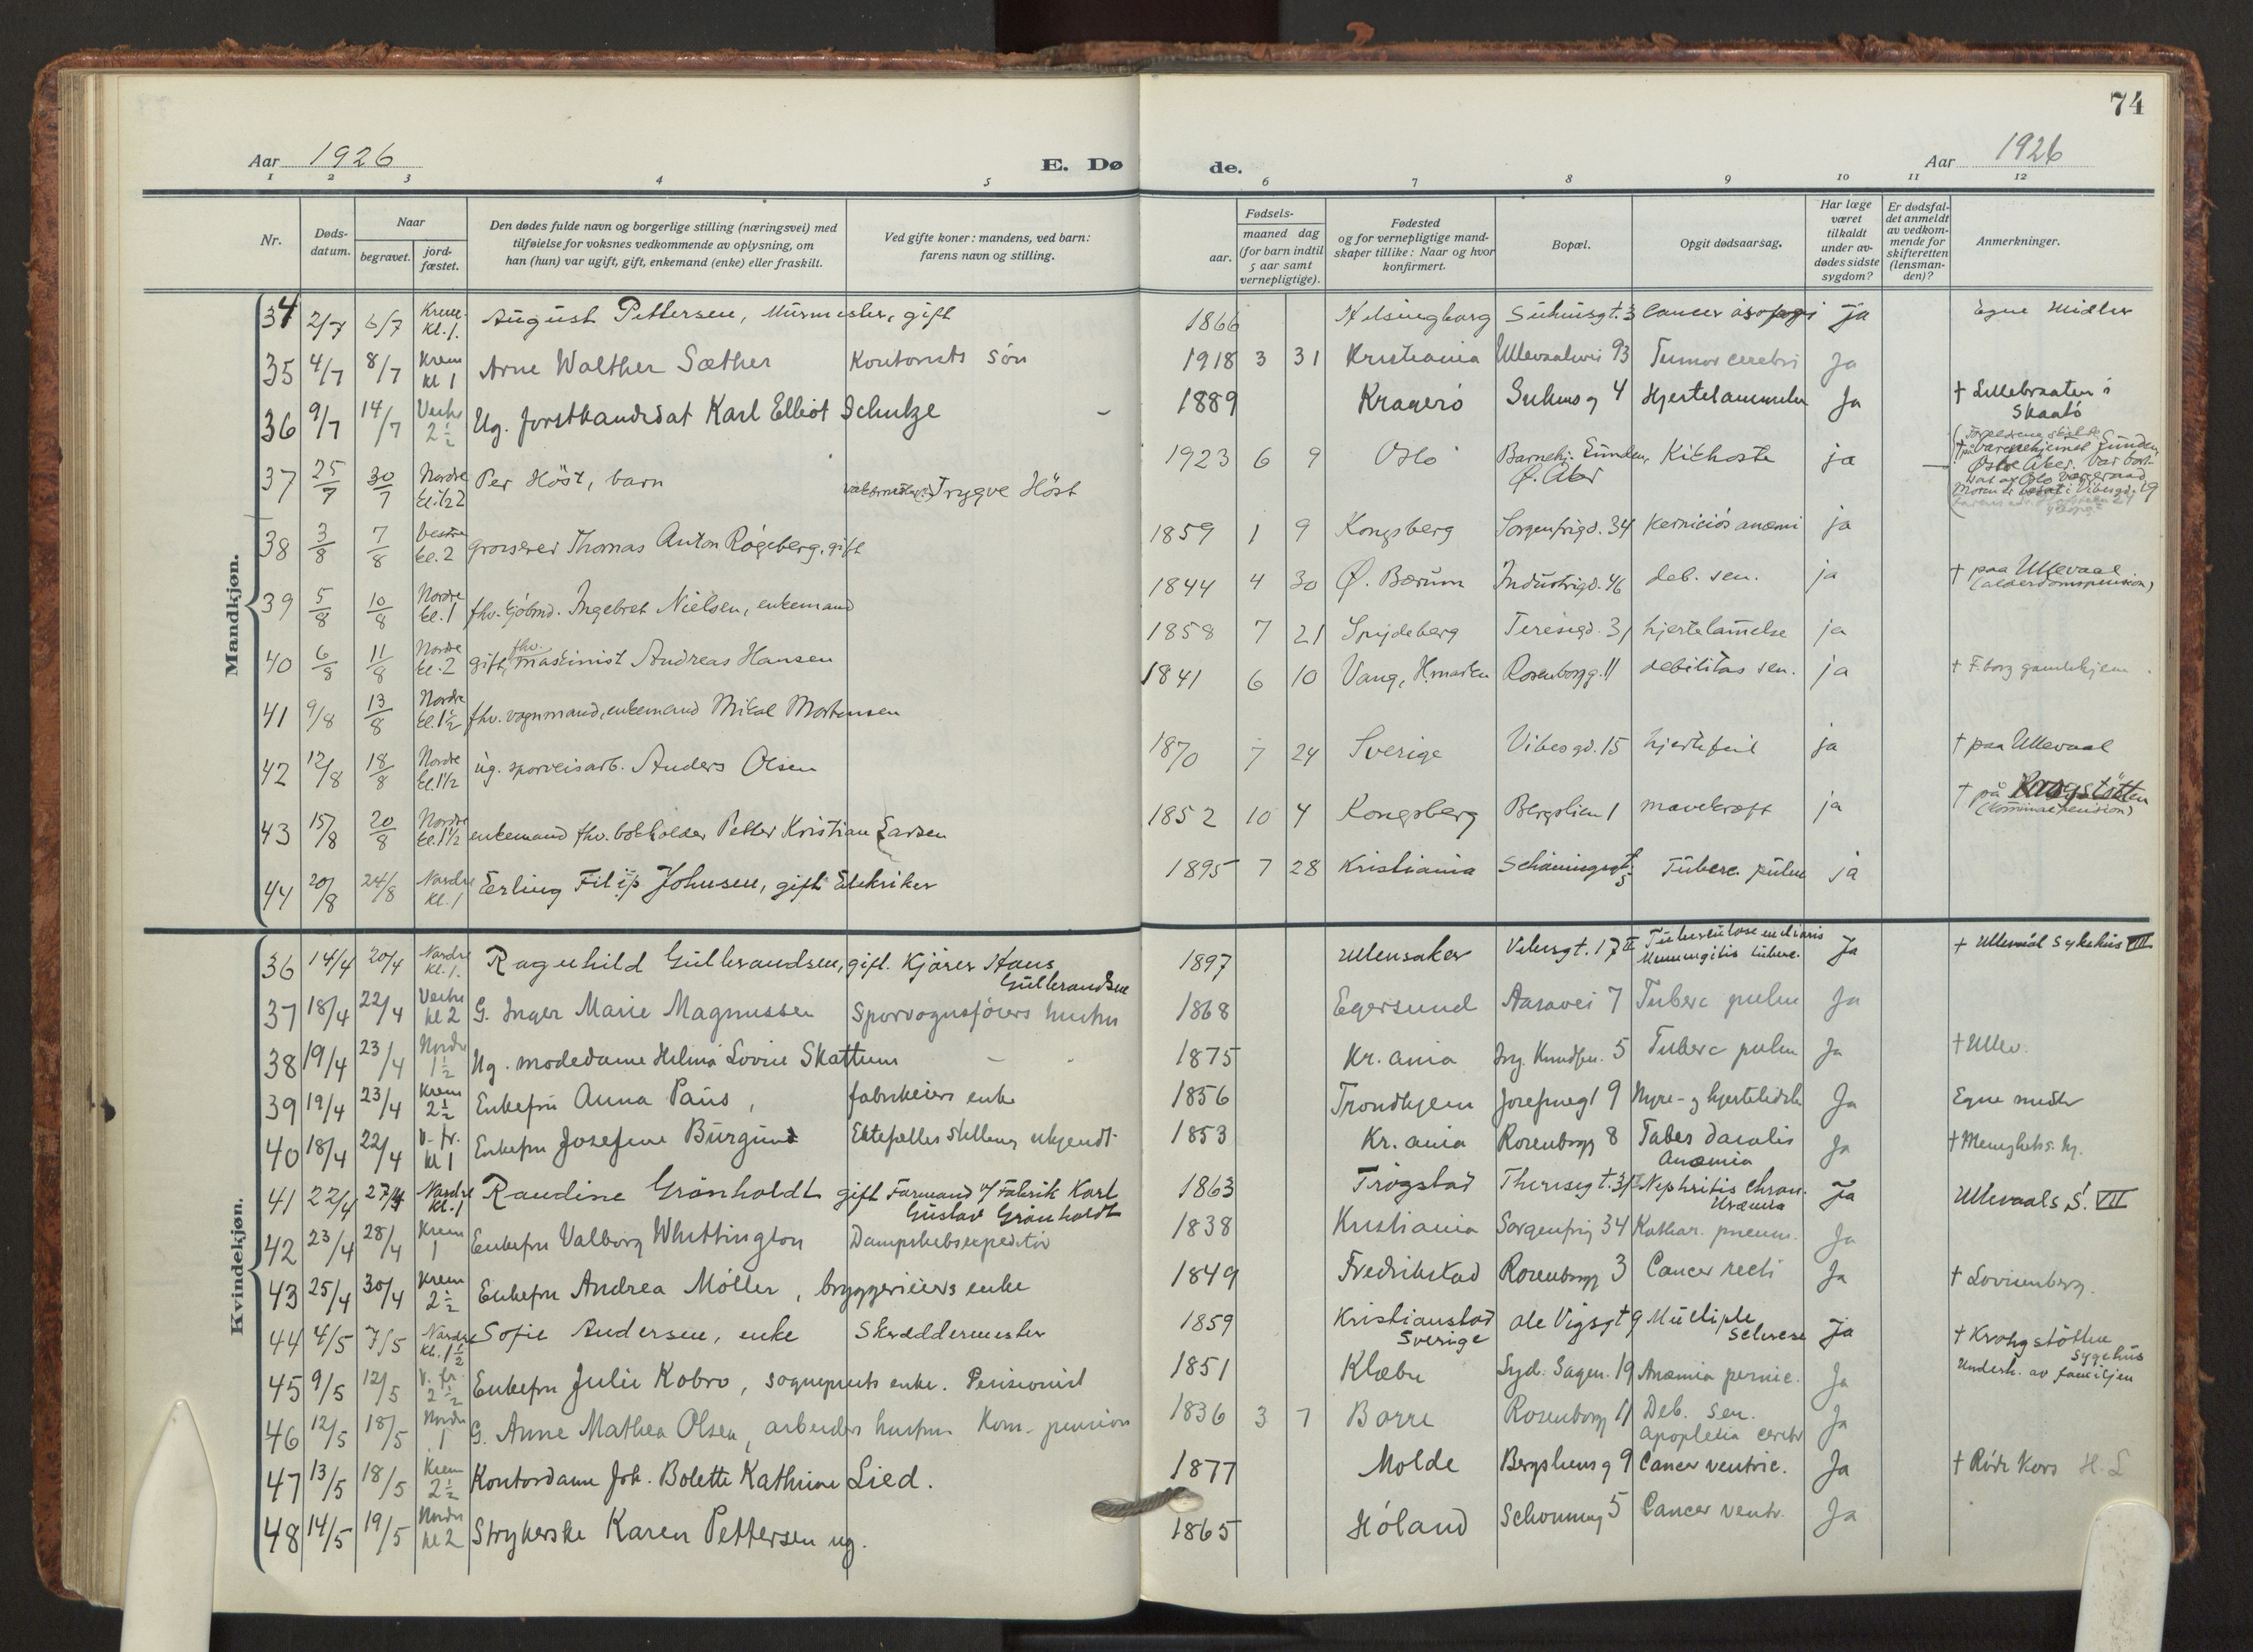 74
Aar 1926
E. Døde.
Aar 1926
1 2 3 4 5 6 7 8 9 10 11 12
Nr.
Døds-datum.
Naar
begravet.
jord-fæstet.
Den dødes fulde navn og borgerlige stilling (næringsvei) med
tilføielse for voksnes vedkommende av oplysning, om
han (hun) var ugift, gift, enkemand (enke) eller fraskilt.
Ved gifte koner: mandens, ved barn:
farens navn og stilling.
Fødsels-
aar.
maaned dag
(for barn indtil
5 aar samt
vernepligtige).
Fødested
og for vernepligtige mand-
skaper tillike: Naar og hvor
konfirmert.
Bopæl.
Opgit dødsaarsag.
Har læge
været
tilkaldt
under av-
dødes sidste
sygdom?
Er dødsfal-
det anmeldt
av vedkom-
mende for
skifteretten
(lensman-
den)?
Anmerkninger.
Mandkjøn.
34 2/7 6/7 Krem. kl. 1. August Pettersen, Murmester, gift 1866 Helsingborg Suhmsgt. 3 Cancer Ja Egne Midler
35 4/7 8/7 Krem kl 1 Arne Walther Sæther Kontorists søn 1918 3 31 Kristiania Ullevaalsvei 93 Tumor cerebri Ja
36 9/7 14/7 2½ Ug. forstkandidat Karl Elliot Schulze - 1889 Kragerø Suhmsg 4 Hjertelammelse Ja † Lillebraaten i Skaatø
37 25/7 30/7 Nordre kl. 1½ Per Höst, barn Trygve Höst 1923 6 9 Oslo Barnehj. Sunden, Ø. Aker Kikhoste ja
38 3/8 7/8 Vestre kl. 2 grosserer Thomas Anton Rögeberg, gift 1859 1 9 Kongsberg Sorgenfrigd. 34 Perniciös anæmi ja
39 5/8 10/8 Nordre kl. 1 fhv. kjöbmd. Ingebret Nielsen, enkemand 1844 4 30 Ø. Bærum Industrigd. 46 deb. sen. ja † paa Ullevaal (alderdomspension)
40 6/8 11/8 Nordre kl. 2 gift, fhv. maskinist Andreas Hansen 1858 7 21 Spydeberg Teresegd. 31 hjertelam̄else ja
41 9/8 13/8 Nordre kl. 1½ fhv. vognmand, enkemand Mikal Mortensen 1841 6 10 Vang, H.marken Rosenborgg. 11 debilitas sen. ja † F.borg gamlehjem.
42 12/8 18/8 Nordre kl. 1½ ug. sporveisarb. Anders Olsen 1870 7 24 Sverige Vibesgd. 15 hjertefeil ja † paa Ullevaal
43 15/8 20/8 Nordre kl. 1½ enkemand fhv. bokholder Petter Kristian Larsen 1852 10 4 Kongsberg Bergslien 1 mavekræft ja † på (kom̄unepension)
44 20/8 24/8 Nordre kl. 1 Erling Filip Johnsen, gift Elektriker 1895 7 28 Kristiania Schøningsgt. 5 Tuberc. pulm ja
Kvindekjøn.
36 14/4 20/4 Nordre kl. 1. Ragnhild Gulbrandsen, gift. Kjører Hans Gulbrandsen 1897 Ullensaker Vibesgt. 17 II Tuberculose miliaris Meningitis tuberc. Ja † Ullevål Sykehus VIII
37 18/4 22/4 Vestre kl 2 G. Inger Marie Magnussen Sporvognsførers hustru 1868 Egersund Aasavei 7 Tuberc pulm Ja
38 19/4 23/4 Nordre 1½ Ug. modedame Helma Lovise Skattum - 1875 Kr.ania Jørg. Knudsøn. 5 Tuberc pulm Ja † Ullev.
39 19/4 23/4 Krem 2½ Enkefru Anna Paus, fabrikeiers enke 1856 Trondhjem Josefinegt 9 Nyre- og hjertelidelse Ja Egne midler
40 18/4 22/4 V. fr. kl 1 Enkefru Josefine Burgund Ektefælles stilling ukjendt 1853 Kr.ania Rosenborgg 8 Tabes dorsalis Anæmia Ja † Menighets. hj.
41 22/4 27/4 Nordre kl. 1 Raudine Grønholdt gift Formand v/ Fabrik Karl Gustav Grønholdt 1863 Trøgstad Theresegt. 31 Nephritis chron. Uræmia Ja Ullevaals S. VII
42 23/4 28/4 Krem 1 Enkefru Valborg Whittington Dampskibsexpeditør 1838 Kristiania Sorgenfrig 34 Kathar. pneum. Ja
43 25/4 30/4 Krem 2½ Enkefru Andrea Møller, bryggerieiers enke 1849 Fredrikstad Rosenborgg 3 Cancer recti Ja † Lovisenberg.
44 4/5 7/5 Nordre kl. 1½ Sofie Andersen, enke Skræddermester 1859 Kristianstad Sverige Ole Vigsgt 9 Multiple sclerose Ja † Krohgstøtten Sygehus
45 9/5 12/5 V. fr. 2½ Enkefru Julie Kobro, sogneprests enke. Pensionist 1851 Klæbu Syd. Sagen. 19 Anæmia pernic. Ja Underh. av familjen
46 12/5 18/5 Nordre 1 G. Anne Mathea Olsen, arbeiders hustru Kom. pension 1836 3 7 Borre Rosenborgg 11 Deb. sen. Apoplexia cerebr Ja
47 13/5 18/5 Krem 2½ Kontordame Joh. Bolette Kathrine Lied. 1877 Molde Bergsliensg 9 Cancer ventric. Ja † Røde Kors H. L
48 14/5 19/5 Nordre kl 2 Strykerske Karen Pettersen ug. 1865 Høland Schonningg 5 Cancer ventr. Ja